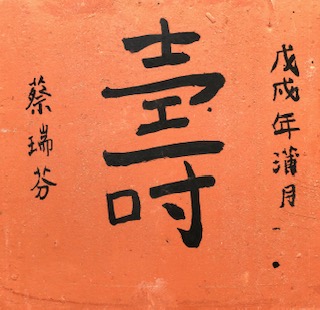 戊戌年蒲月
壽
蔡瑞芬